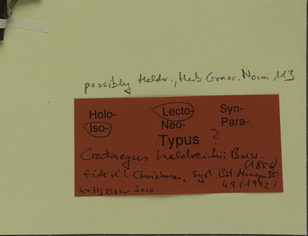 possibly Heldr., Herb. Graec. Norm. 113
Holo- Lecto- Syn-
Iso- Neo- Para-
Typus ?
Crataegus heldreichii Boiss.
(1856)
fide K. I. Christensen, Syst. Bot. Monogr. 35:
49 (1992)